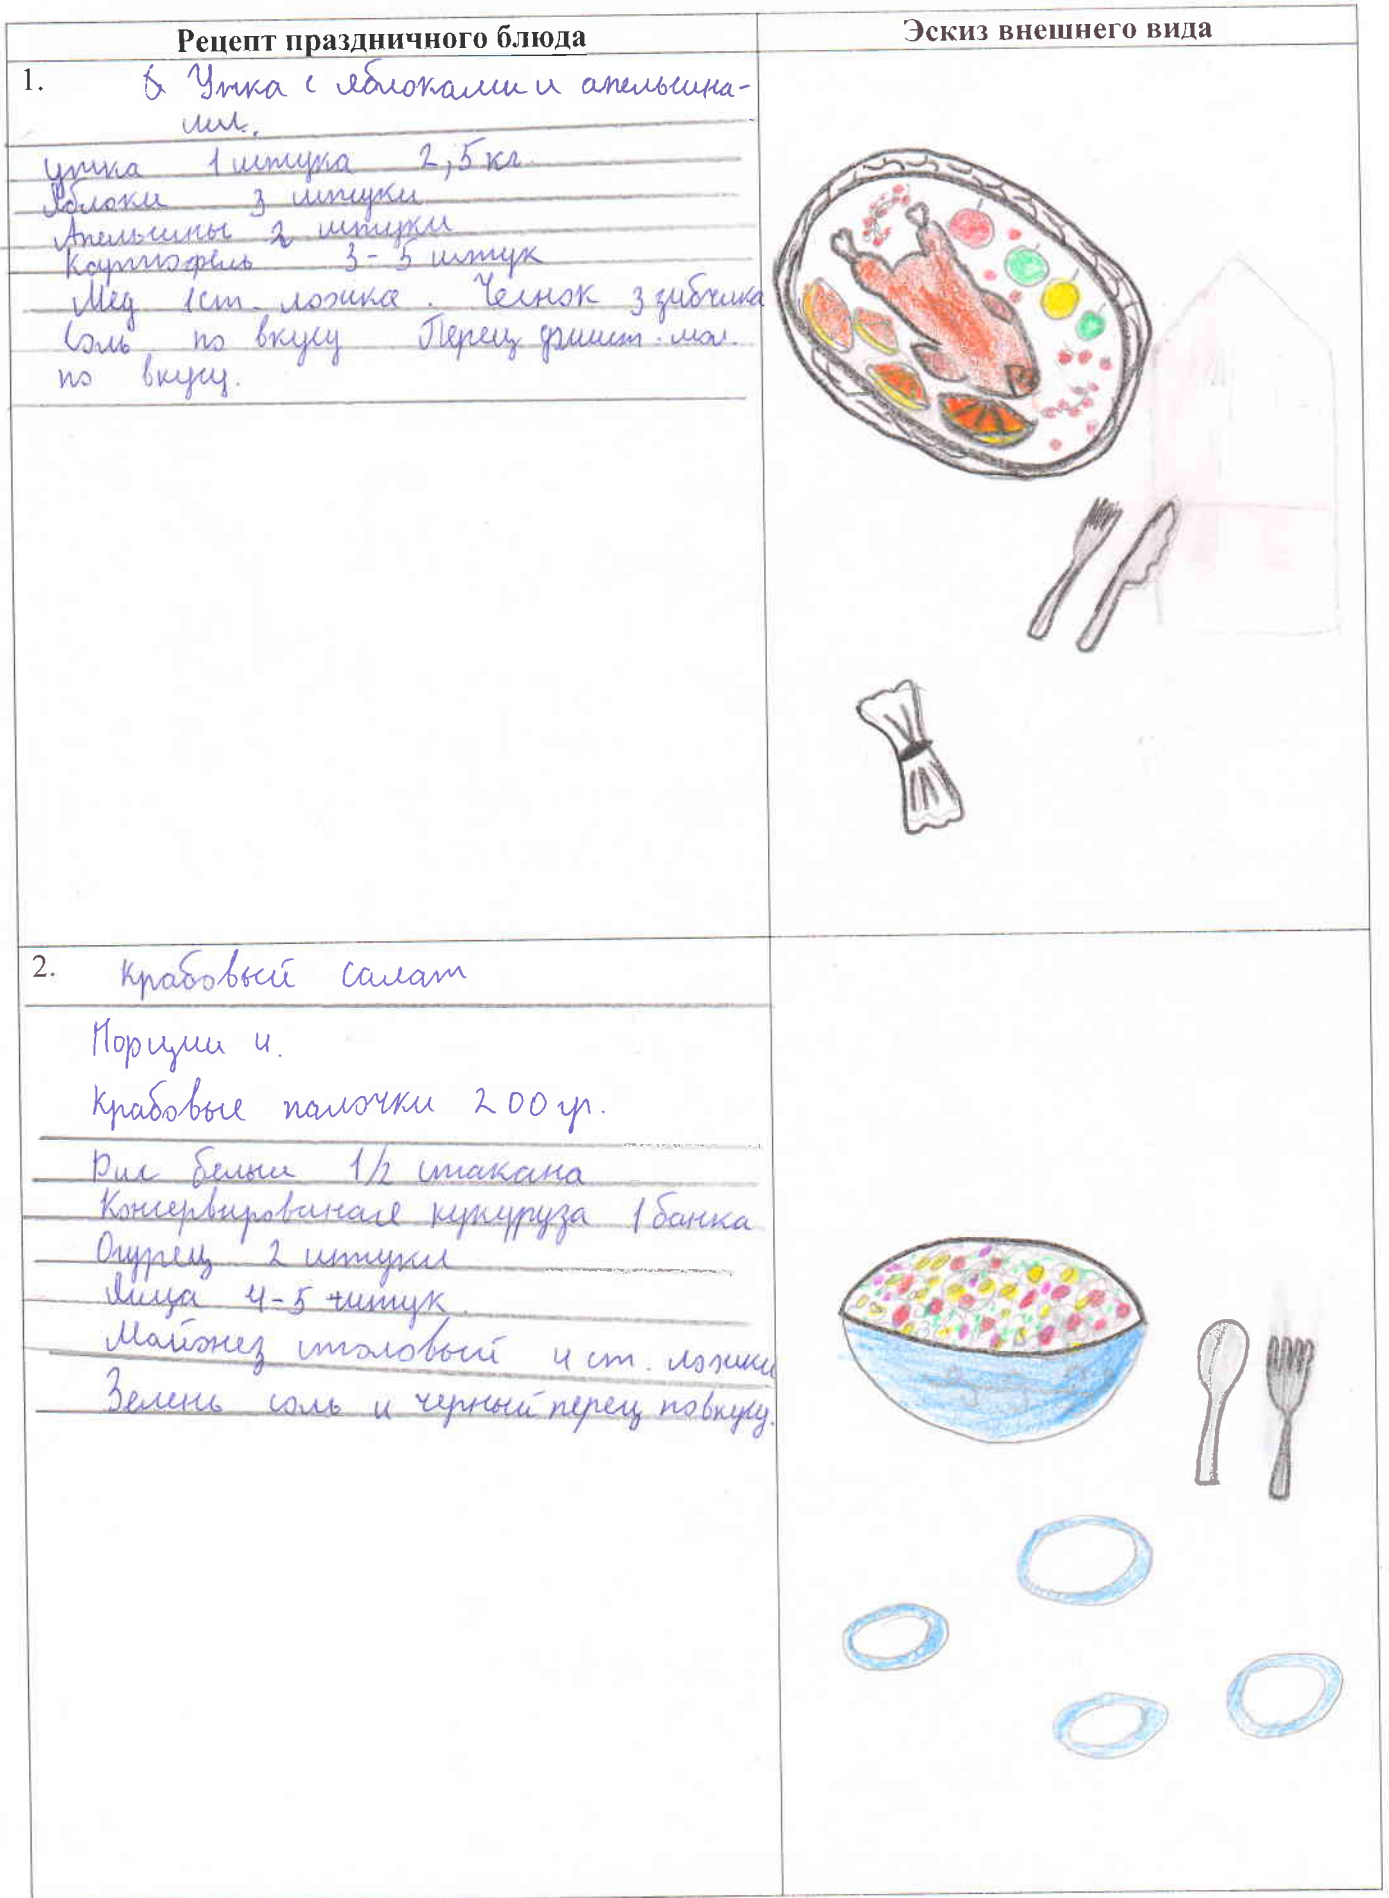 Рецепт праздничного блюда
Эскиз внешнего вида
1. Утка с яблоками и апельсина-
ми.
утка 1 штука 2,5 кг
Яблоки 3 штуки
Апельсины 2 штуки
Картофель 3-5 штук
Мёд 1 ст. ложка. Чеснок 3 зубчика
Соль по вкусу Перец мол.
по вкусу.
2. Крабовый салат
Порции 4.
Крабовые палочки 200 гр.
Рис белый 1/2 стакана
Консервированая кукуруза 1 банка
Огурец 2 штуки
Яица 4-5 штук.
Майонез столовый 4 ст. ложки
Зелень соль и черный перец по вкусу.